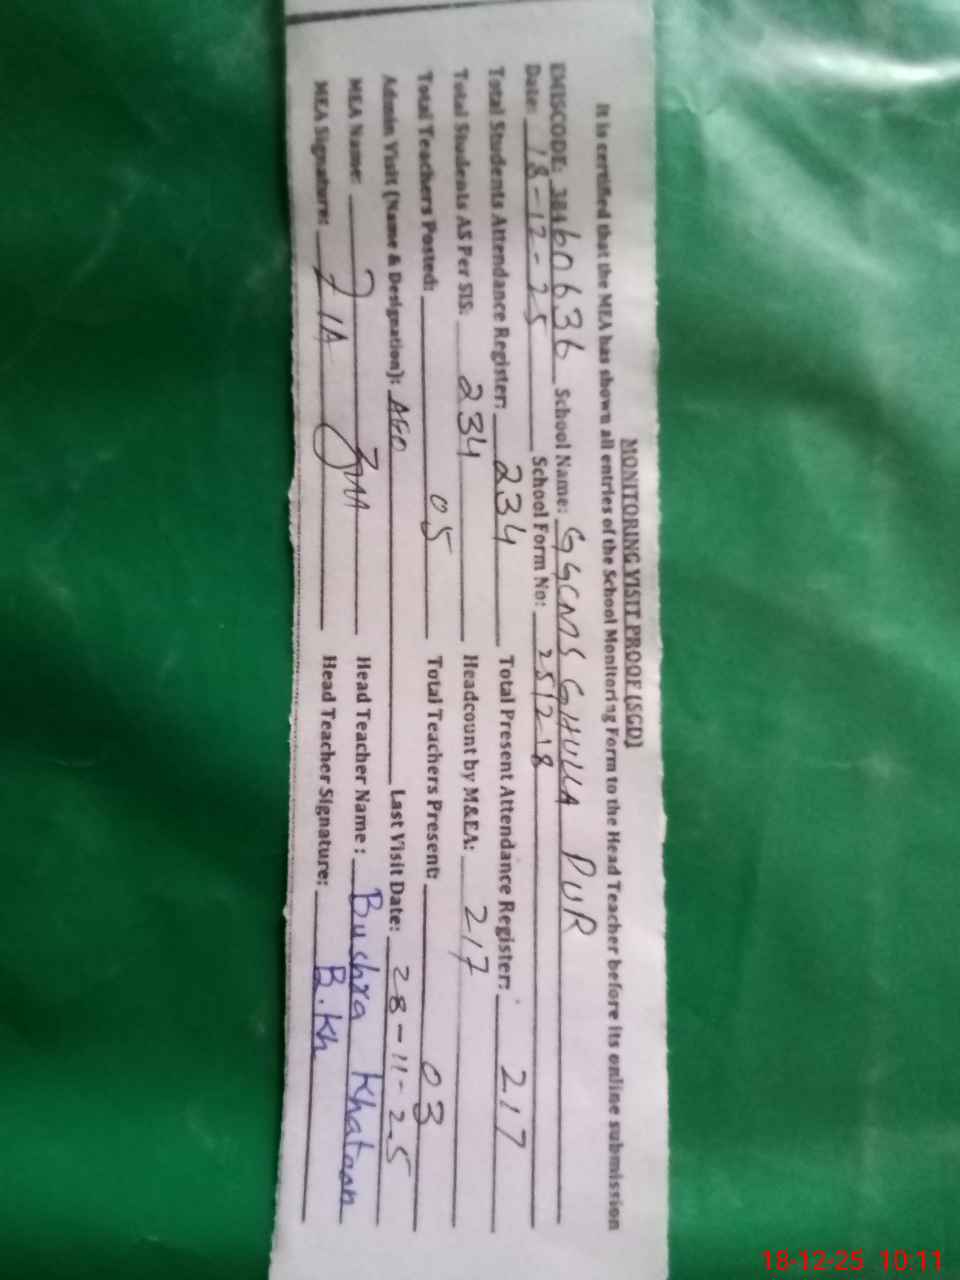 MONITORING VISIT PROOF (SGD)
It is certified that the MEA has shown all entries of the School Monitoring Form to the Head Teacher before its online submission
EMISCODE: 38460636 School Name: GGCMS GHULLA PUR
Date: 18-12-25 School Form No: 2512-18
Total Students Attendance Register: 234 Total Present Attendance Register: 217
Total Students AS Per SIS: 234 Headcount by M&EA: 217
Total Teachers Posted: 05 Total Teachers Present: 03
Admin Visit (Name & Designation): AEO Last Visit Date: 28-11-25
MEA Name: Head Teacher Name: Bushra Khatoon
MEA Signature: Head Teacher Signature: B.Kh
18-12-25 10:11